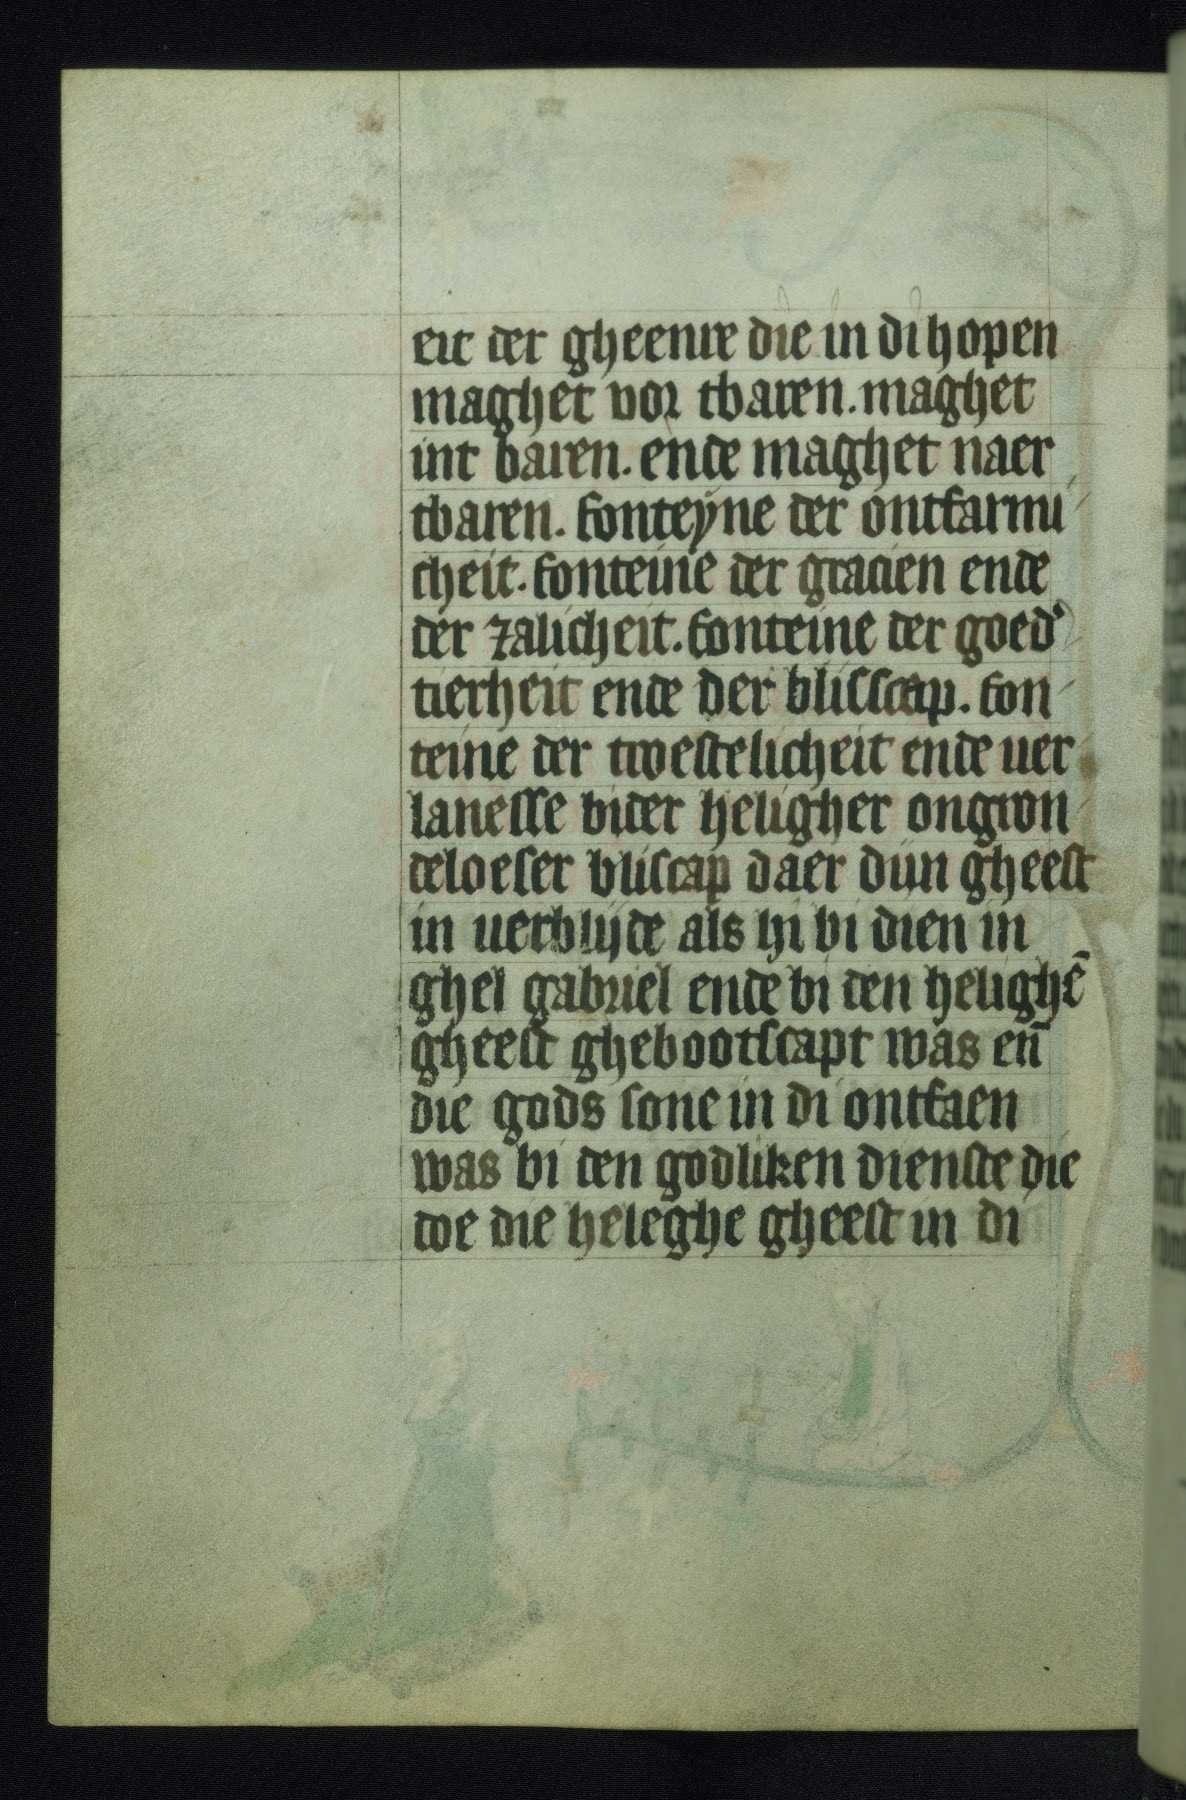 eit der gheenre die in di hopen
maghet vor tbaren. maghet
int baren. ende maghet naer
tbaren. fonteyne der ontfarmi
cheit. fonteine der gracien ende
der zalicheit. fonteine der goed'
tierheit ende der blisscap. fon
teine der troestelicheit ende ver
lanesse bider heligher ongron
deloeser bliscap daer dijn gheest
in verblijde als hi bi dien in
ghel gabriel ende bi den helighē
gheest ghebootscapt was eñ
die gods sone in di ontfaen
was bi den godliken dienste die
doe die heleghe gheest in di